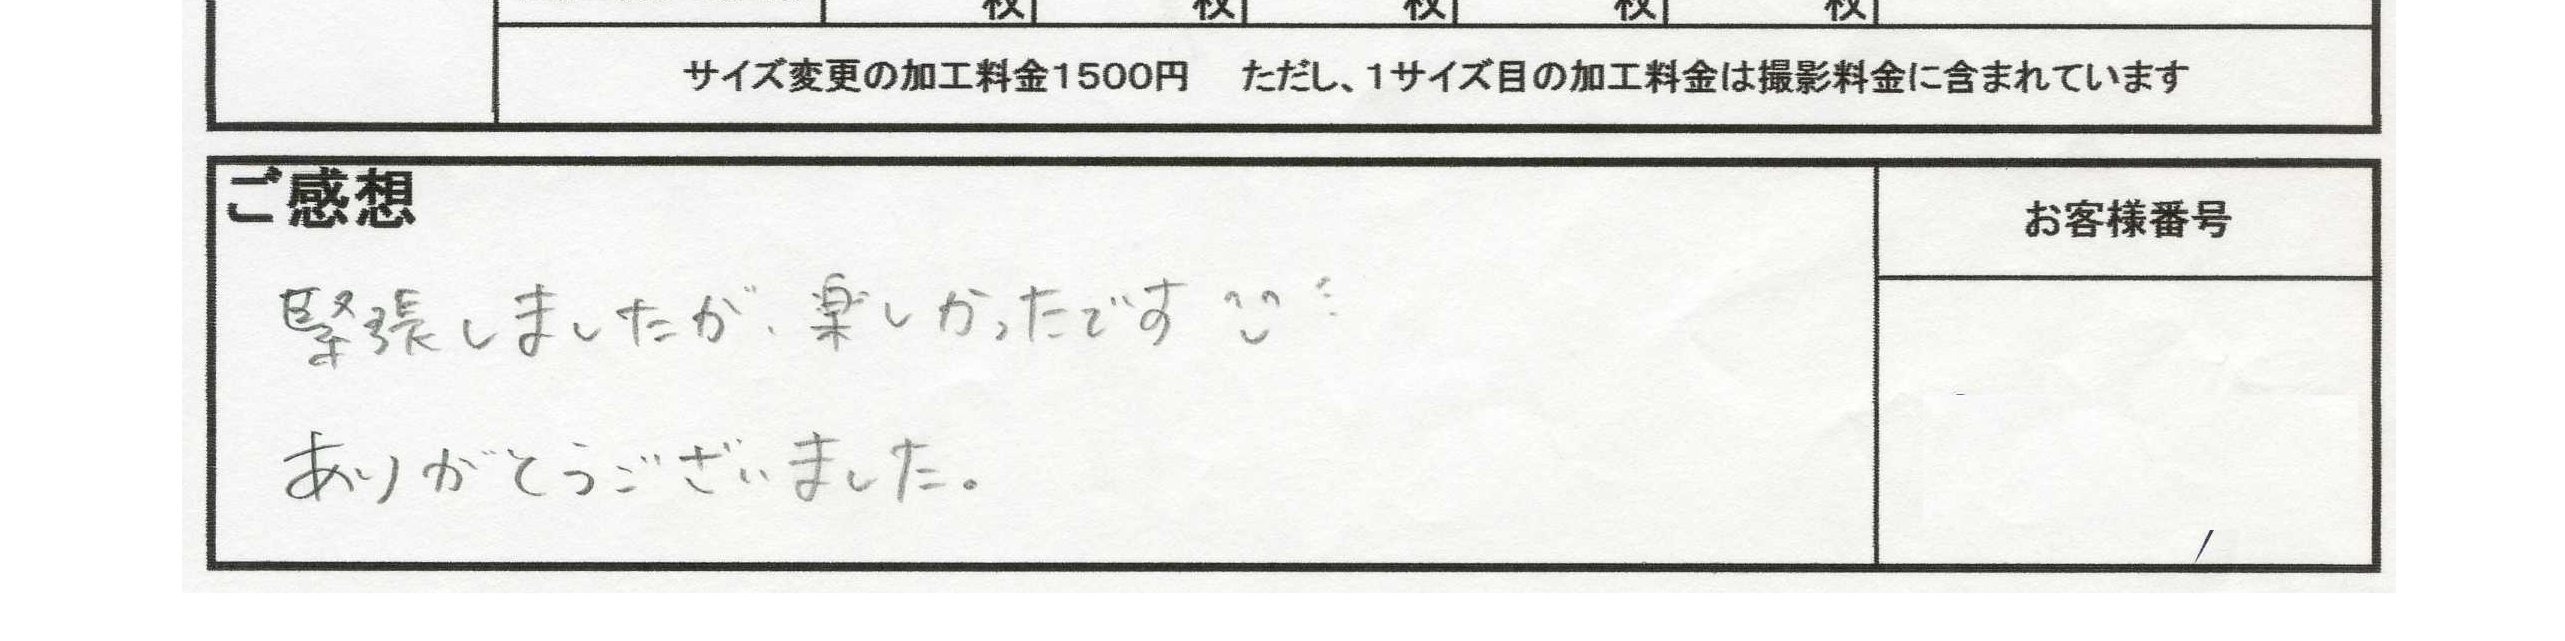 枚 枚 枚 枚 枚
サイズ変更の加工料金1500円 ただし、1サイズ目の加工料金は撮影料金に含まれています
ご感想
お客様番号
緊張しましたが、楽しかったです
ありがとうございました。